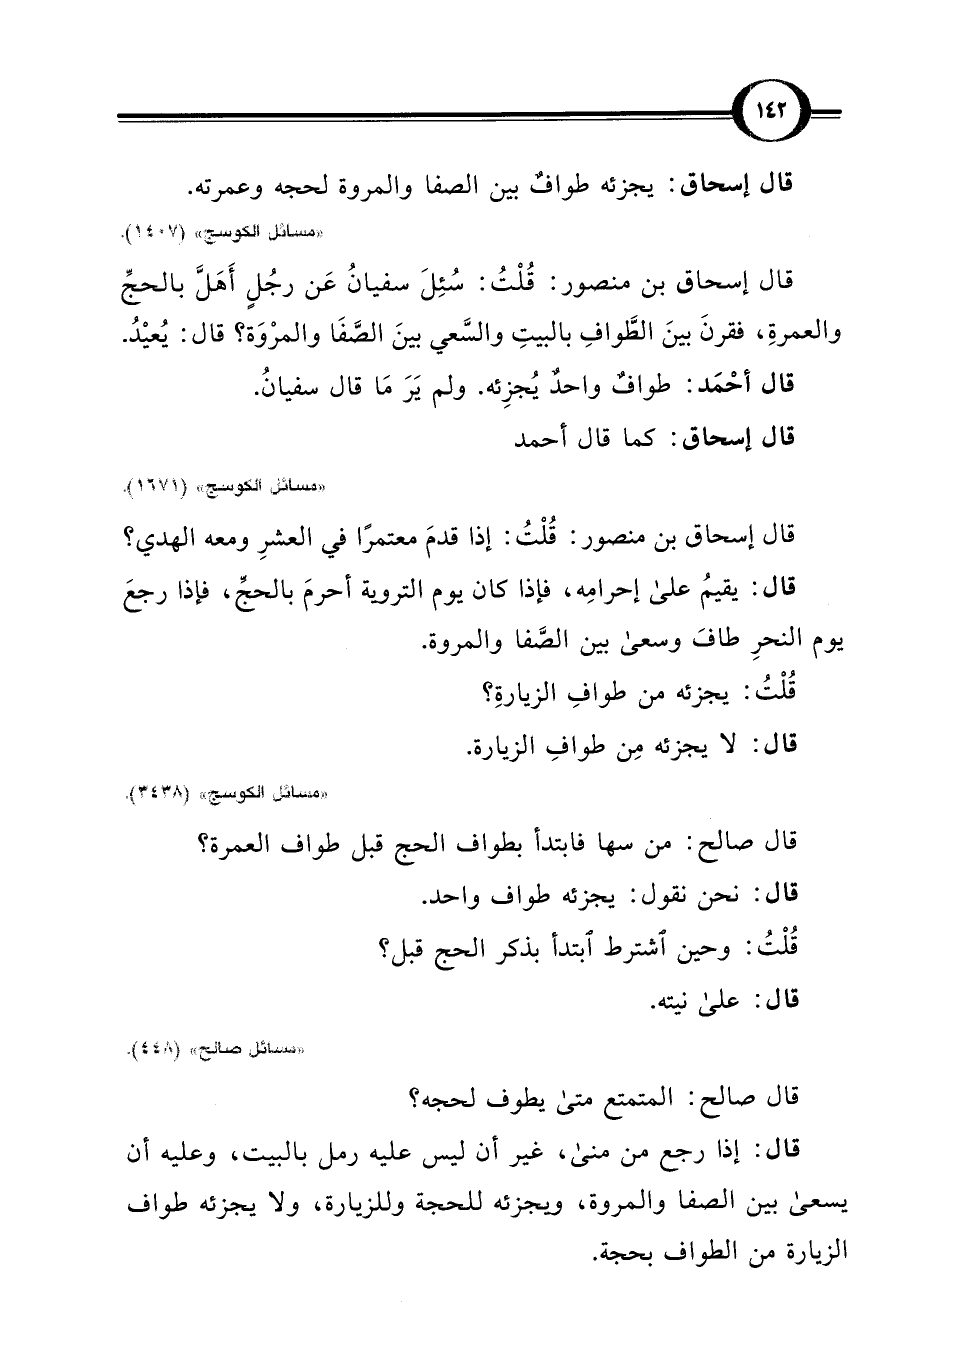 ١٤٢
قال إسحاق: يجزئه طوافٌ بين الصفا والمروة لحجه وعمرته.
«مسائل الكوسج» (١٤٠٧).
قال إسحاق بن منصور: قُلْتُ: سُئِلَ سفيانُ عَن رجُلٍ أَهَلَّ بالحجِّ
والعمرةِ، فقرنَ بينَ الطَّوافِ بالبيتِ والسَّعي بينَ الصَّفَا والمرْوَة؟ قال: يُعيْدُ.
قال أحْمَد: طوافٌ واحدٌ يُجزِئه. ولم يَرَ مَا قال سفيانُ.
قال إسحاق: كما قال أحمد
«مسائل الكوسج» (١٦٧١).
قال إسحاق بن منصور: قُلْتُ: إذا قدمَ معتمرًا في العشرِ ومعه الهدي؟
قال: يقيمُ علىٰ إحرامِه، فإذا كان يوم التروية أحرمَ بالحجِّ، فإذا رجعَ
يوم النحرِ طافَ وسعىٰ بين الصَّفا والمروة.
قُلْتُ: يجزئه من طوافِ الزيارةِ؟
قال: لا يجزئه مِن طوافِ الزيارة.
«مسائل الكوسج» (٣٤٣٨).
قال صالح: من سها فابتدأ بطواف الحج قبل طواف العمرة؟
قال: نحن نقول: يجزئه طواف واحد.
قُلْتُ: وحين ٱشترط ٱبتدأ بذكر الحج قبل؟
قال: علىٰ نيته.
«مسائل صالح» (٤٤٨).
قال صالح: المتمتع متىٰ يطوف لحجه؟
قال: إذا رجع من منىٰ، غير أن ليس عليه رمل بالبيت، وعليه أن
يسعىٰ بين الصفا والمروة، ويجزئه للحجة وللزيارة، ولا يجزئه طواف
الزيارة من الطواف بحجة.